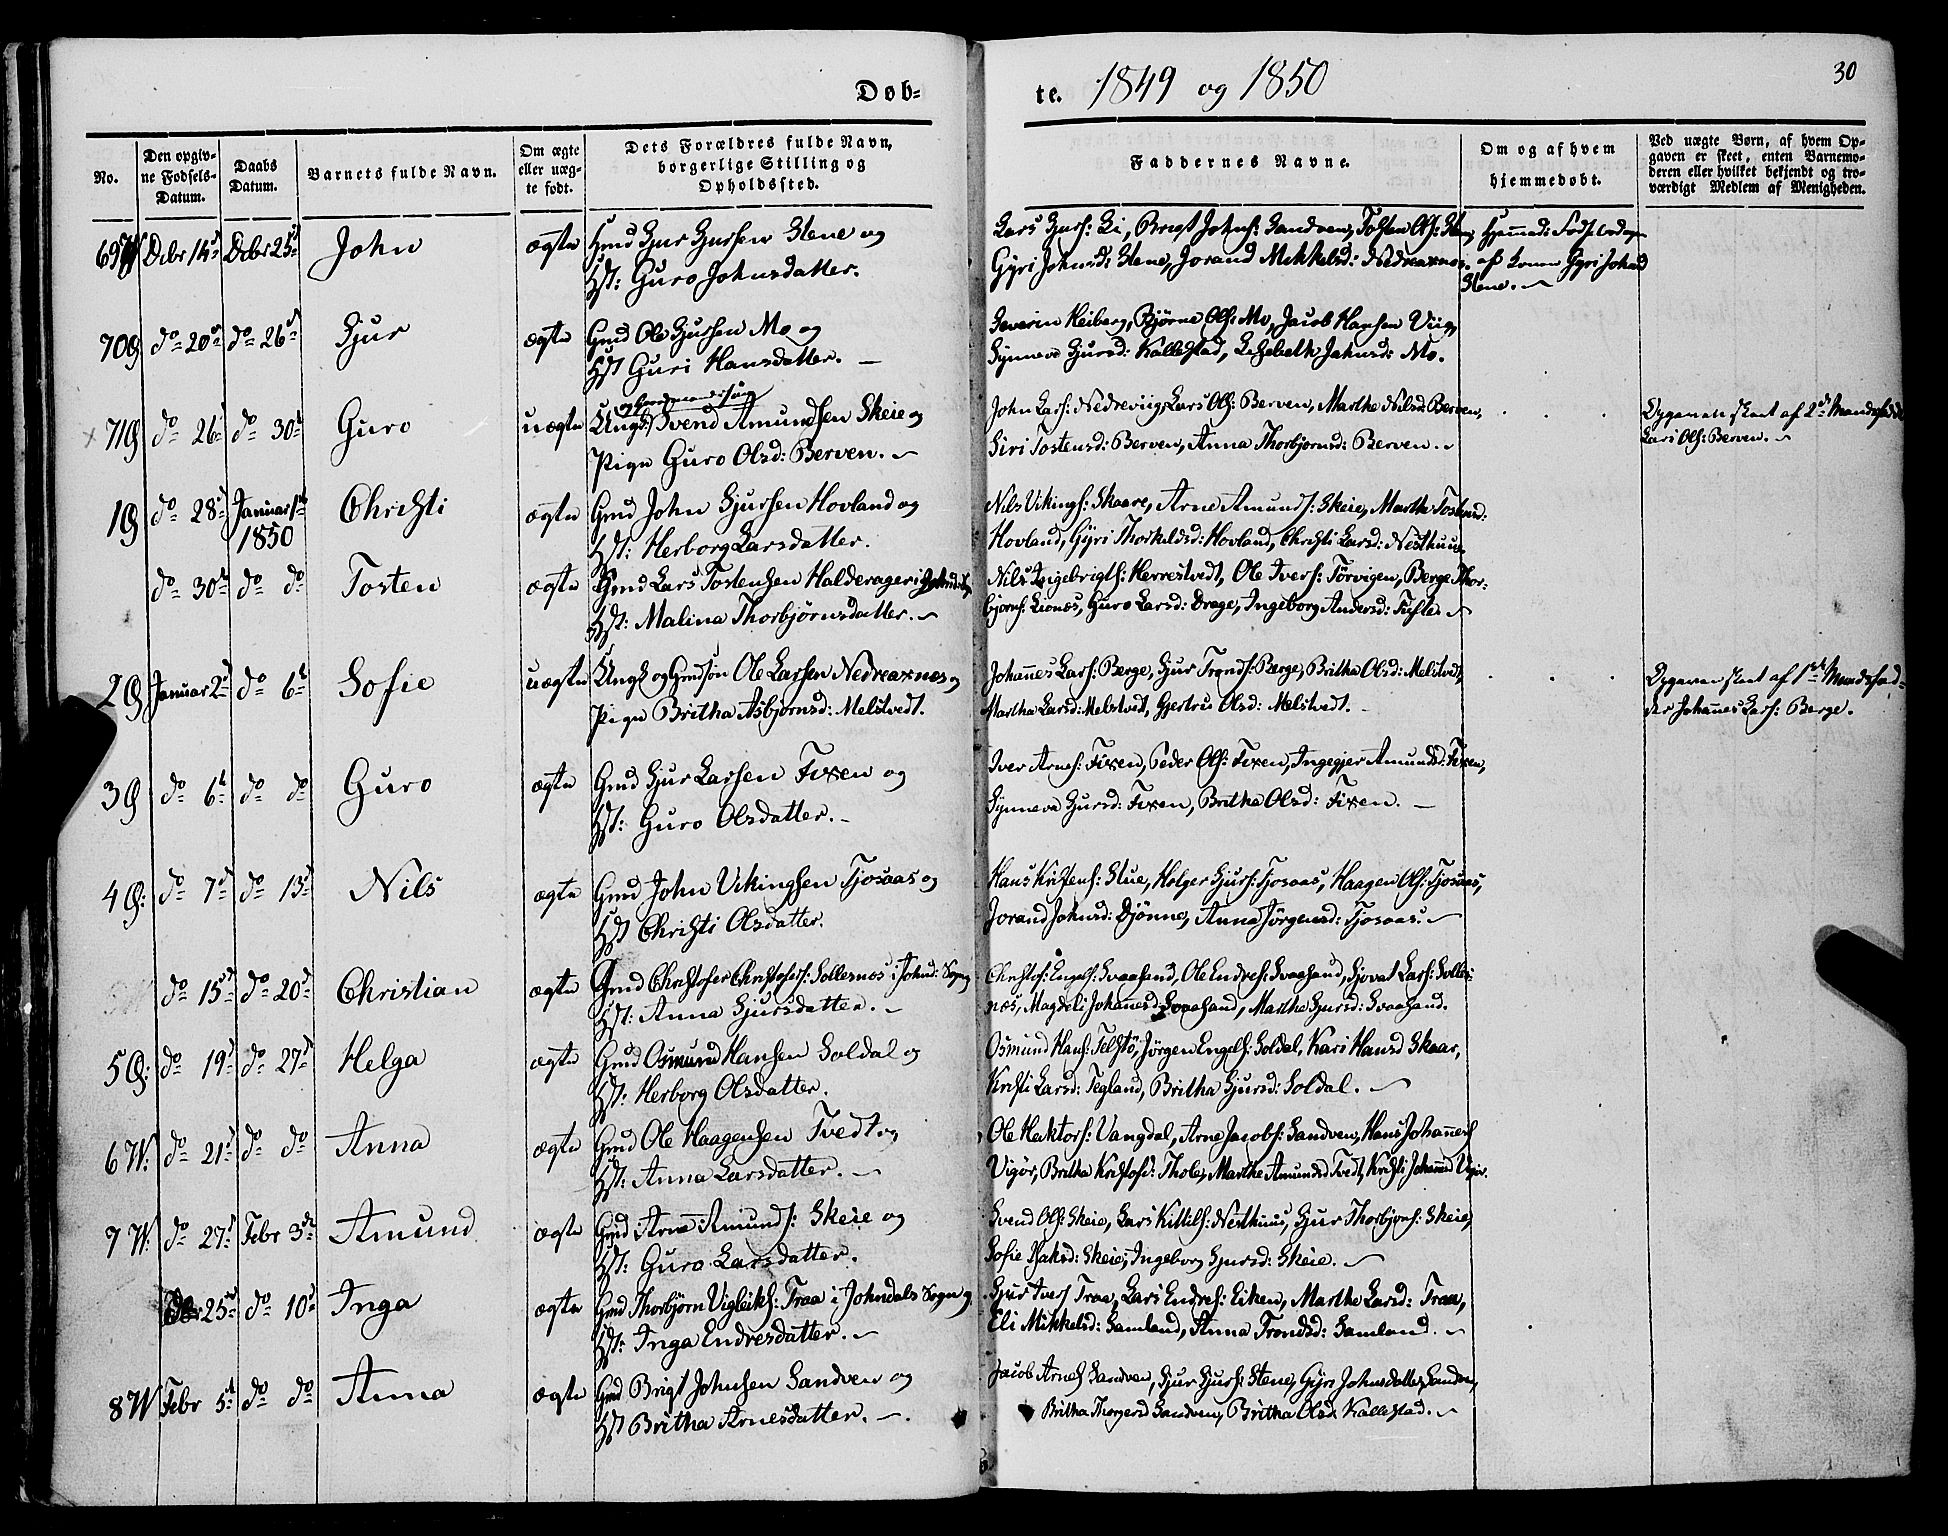 Døb-
te. 1849 og 1850
30
No.
Den opgiv-
ne Fødsels-
Datum.
Daabs
Datum.
Barnets fulde Navn.
Om ægte
eller uæg-
te født.
Dets Forældres fulde Navn,
borgerlige Stilling og
Opholdssted.
Faddernes Navne.
Om og af hvem
hjemmedøbt.
Ved uægte Børn, af hvem Op-
gaven er skeet, enten Barnemo-
deren eller hvilket bekjendt og tro-
værdigt Medlem af Menigheden.
69 Dcbr 14d Dcbr 25d John ægte Gmd Sjur Sjursen Stene og
Hst: Guro Johnsdatter.
Lars Sjurs: Li, Brigt Johns: Sandven, Tosten Ols: Stene
Gyri Johnsd: Stene, Jorand Mikkelsd: Nedreaxnes.
af Konen Gyri Johnsd
Stene.
70Ø do 20d do 26d Sjur ægte Gmd Ole Sjursen Mo og
Hst Guri Hansdatter.
Severin Heiberg, Bjørne Ols: Mo, Jacob Hansen Viig,
Synneva Sjursd: Kallestad, Lisebeth Johnsd: Mo.
71Ø do 26 do 30 Guro uægte Ungk: Svend Amundsen Skeie og
Pige Guro Olsd: Berven.
John Lars: Nedreviig, Lars Ols: Berven, Marthe Nilsd: Berven,
Siri Tostensd: Berven, Anna Thorbjornsd: Berven.
Opgaven skeet af 2d Mandsfadder
Lars Ols: Berven.
1Ø do 28 Januar 1st
1850
Christi ægte Gmd John Sjursen Hovland og
Hst: Herborg Larsdatter.
Nils Vikings: Skaare, Arne Amunds: Skeie, Marthe Tostensd:
Hovland, Gyri Thorkeldsd: Hovland, Christi Larsd: Nesthuus.
do 30 do do Tosten ægte Gmd Lars Tostensen Halderager i
Hst: Malina Thorbjørnsdatter.
Nils Ingebrigts: Herrestvedt, Ole Ivers: Torvigen, Berge Thor-
bjorns: Lionæs, Guro Larsd: Drage, Ingeborg Andersd: Tufte.
2Ø Januar 2d do 6t Sofie uægte Ungk og Gmdsøn Ole Larsen Nedreaxnes og
Pige Britha Asbjornsd: Melstvedt.
Johannes Lars: Berge, Sjur Tronds: Berge, Britha Olsd: Melstvedt,
Martha Larsd: Melstvedt, Gjertru Olsd: Melstvedt.
Opgaven skeet af 1ste Mandsfad-
der Johannes Lars: Berge.
3Ø do 6t do do Guro ægte Gmd Sjur Larsen Fixen og
Hst: Guro Olsdatter.
Iver Arnes: Fixen, Peder Ols: Fixen, Ingegjer Amundsd: Fixen,
Synneva Sjursd: Fixen, Britha Olsd: Fixen.
4Ø: do 7d do 13d Nils ægte Gmd John Vikingsen Tjosaas og
Hst Christi Olsdatter.
Hans Kristens: Stue, Holger Sjurs: Tjosaas, Haagen Ols: Tjosaas,
Jorand Johnsd: Djønne, Anna Jørgensd: Tjosaas.
do 15d do 20d Christian ægte Gmd Christofer Christofers: Sollesnæs i Johnd: Sogn
Hst: Anna Sjursdatter.
Christof: Engels: Svaasand, Ole Endres: Svaasand, Sjovat Lars: Solles-
næs, Magdeli Johannesd: Svaasand, Marthe Sjursd: Svaasand.
5Ø: do 19d do 27d Helga ægte Gmd Osmund Hansen Soldal og
Hst: Herborg Olsdatter.
Osmund Hans: Telstø, Jørgen Engels: Soldal, Kari Hansd Skaar,
Kristi Larsd: Tegland, Britha Sjursd: Soldal.
6W: do 21d do do Anna ægte Gmd Ole Haagensen Tvedt og
Hst: Anna Larsdatter.
Ole Hektors: Vangdal, Arne Jacobs: Sandven, Hans Johannes
Vigør, Britha Kristofd: Thole, Marthe Amundsd Tvedt, Kristi Johannesd Vigør.
7W: do 27d Febr 3d Amund ægte Gmd Arne Amunds: Skeie og
Hst: Guro Larsdatter.
Svend Ols: Skeie, Lars Kittils: Nesthuus, Sjur Thorbjorns: Skeie,
Sofie Isaksd: Skeie, Ingeborg Sjursd: Skeie.
25 do 10d Inga ægte Gmd Thorbjørn Vigleiks: Traa i Johndals Sogn og
Hst: Inga Endresdatter.
Sjur Ivers Traa, Lars Endres: Eiken, Marthe Larsd: Traa,
Eli Mikkelsd: Samland, Anna Trondsd: Samland.
8W Febr 5t do do Anna ægte Gmd Brigt Johnsen Sandven og
Hst Britha Arnesdatter.
Jacob Arnes Sandven, Sjur Sjurs: Stene, Gyri Johnsdatter Sandven,
Britha Thorgersd Sandven, Britha Olsd: Kallestad.